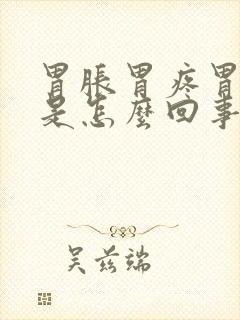 胃脹胃疼胃
是怎麼回事
吴兹端